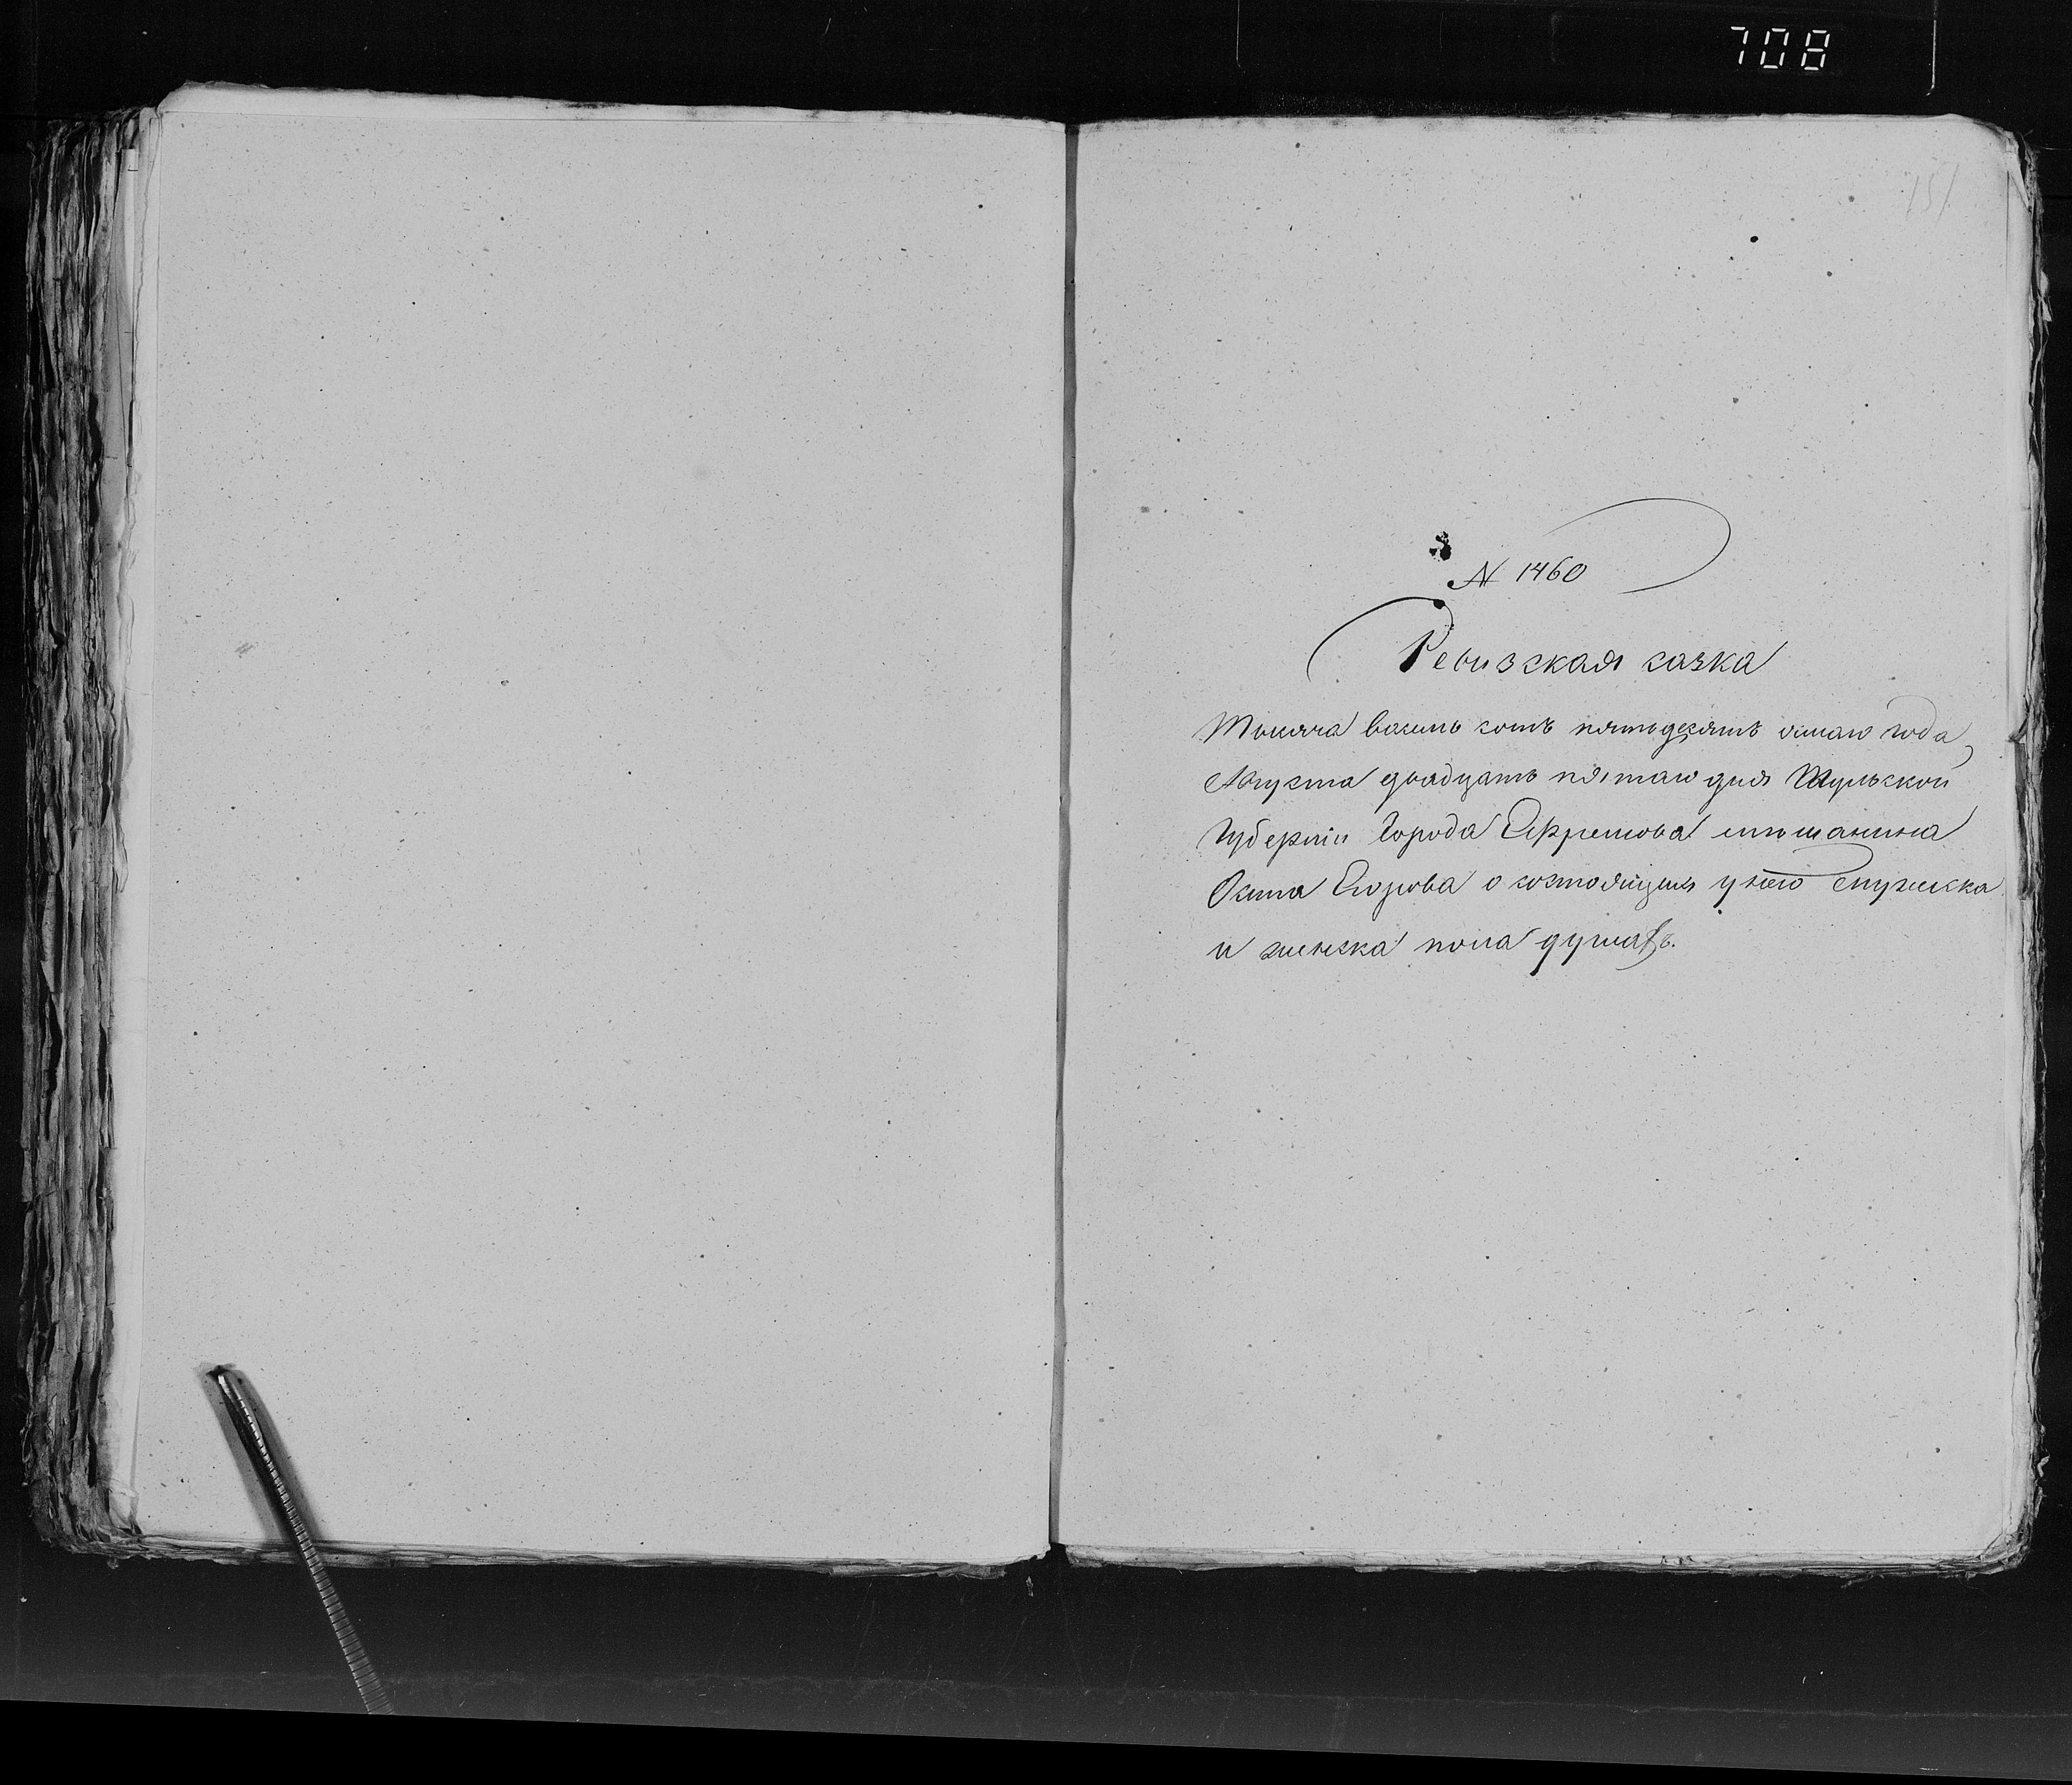 708
151
N 1460
Ревизская сазка
Тысяча восемь сотъ пятьдесятъ осмаго года,
Августа двадцать пятаго дня Тульской
Губерніи Города Ефремова мѣщанина
Егорова о состоящихъ у него мужеска
и женска пола душахъ.